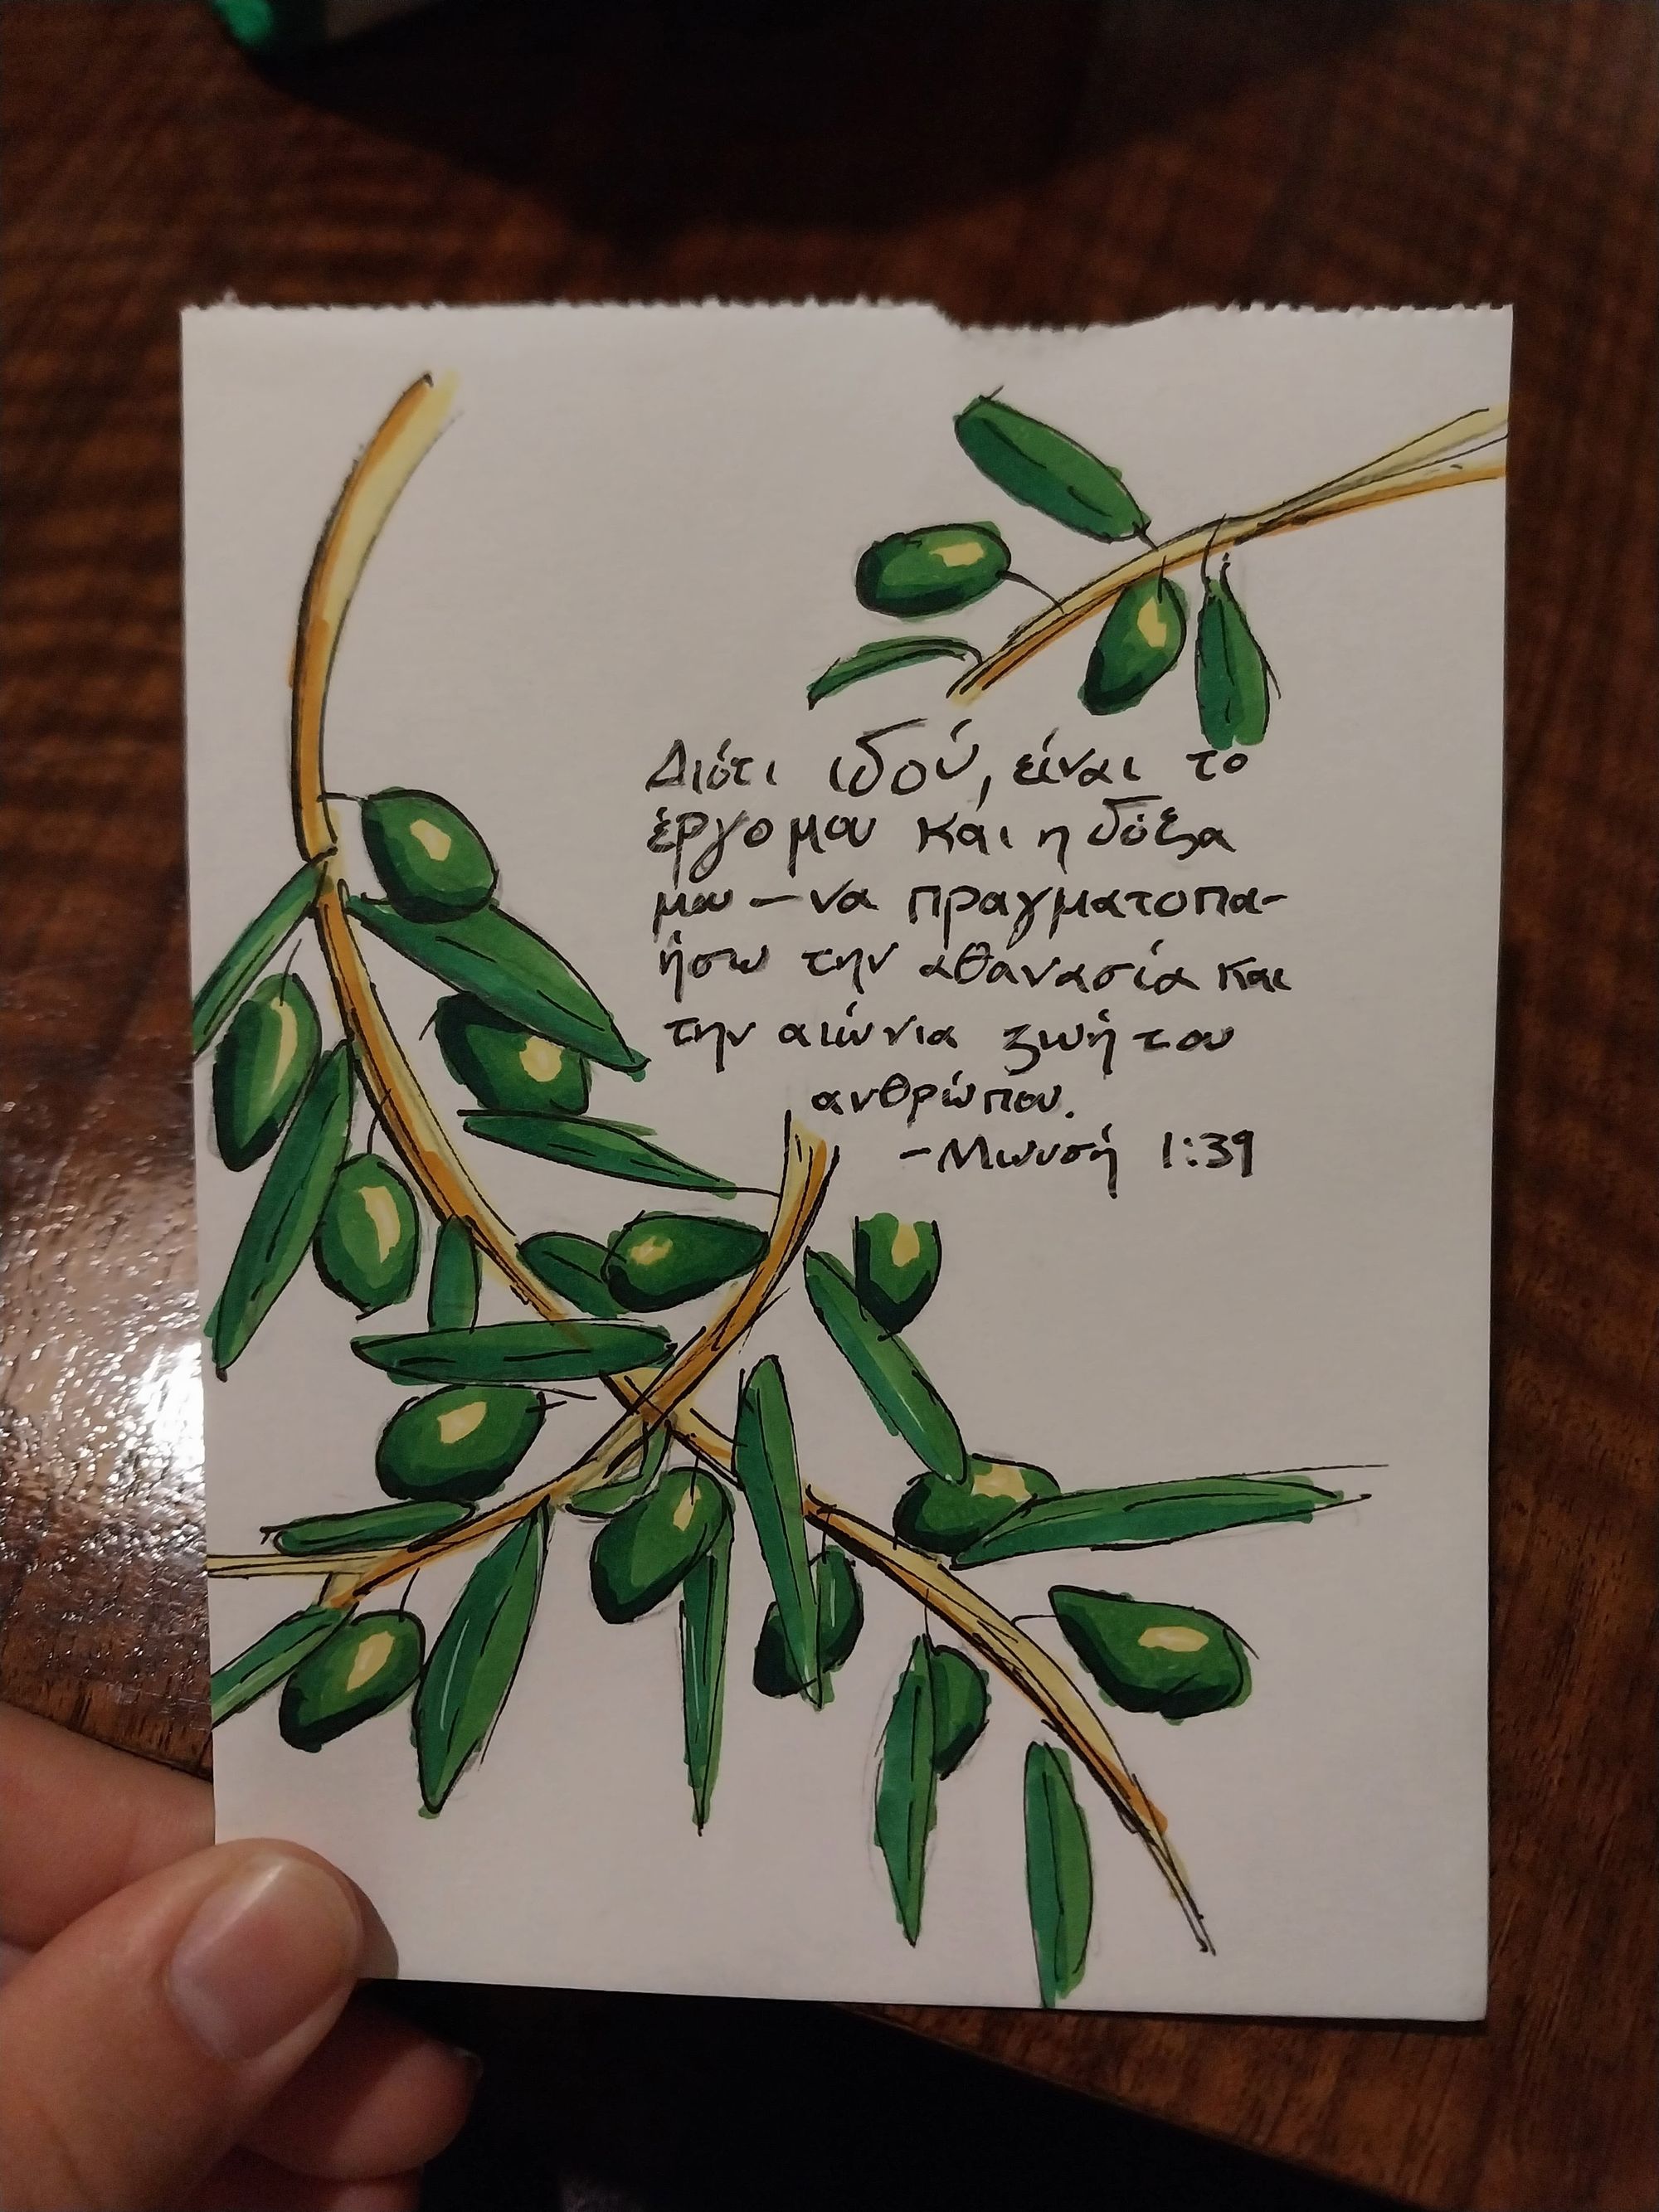 Διότι ιδού, είναι το
έργο μου και η δόξα
μου – να πραγματοπα-
ήσω την αθανασία και
την αιώνια ζωή του
ανθρώπου.
- Μωυσή 1:39